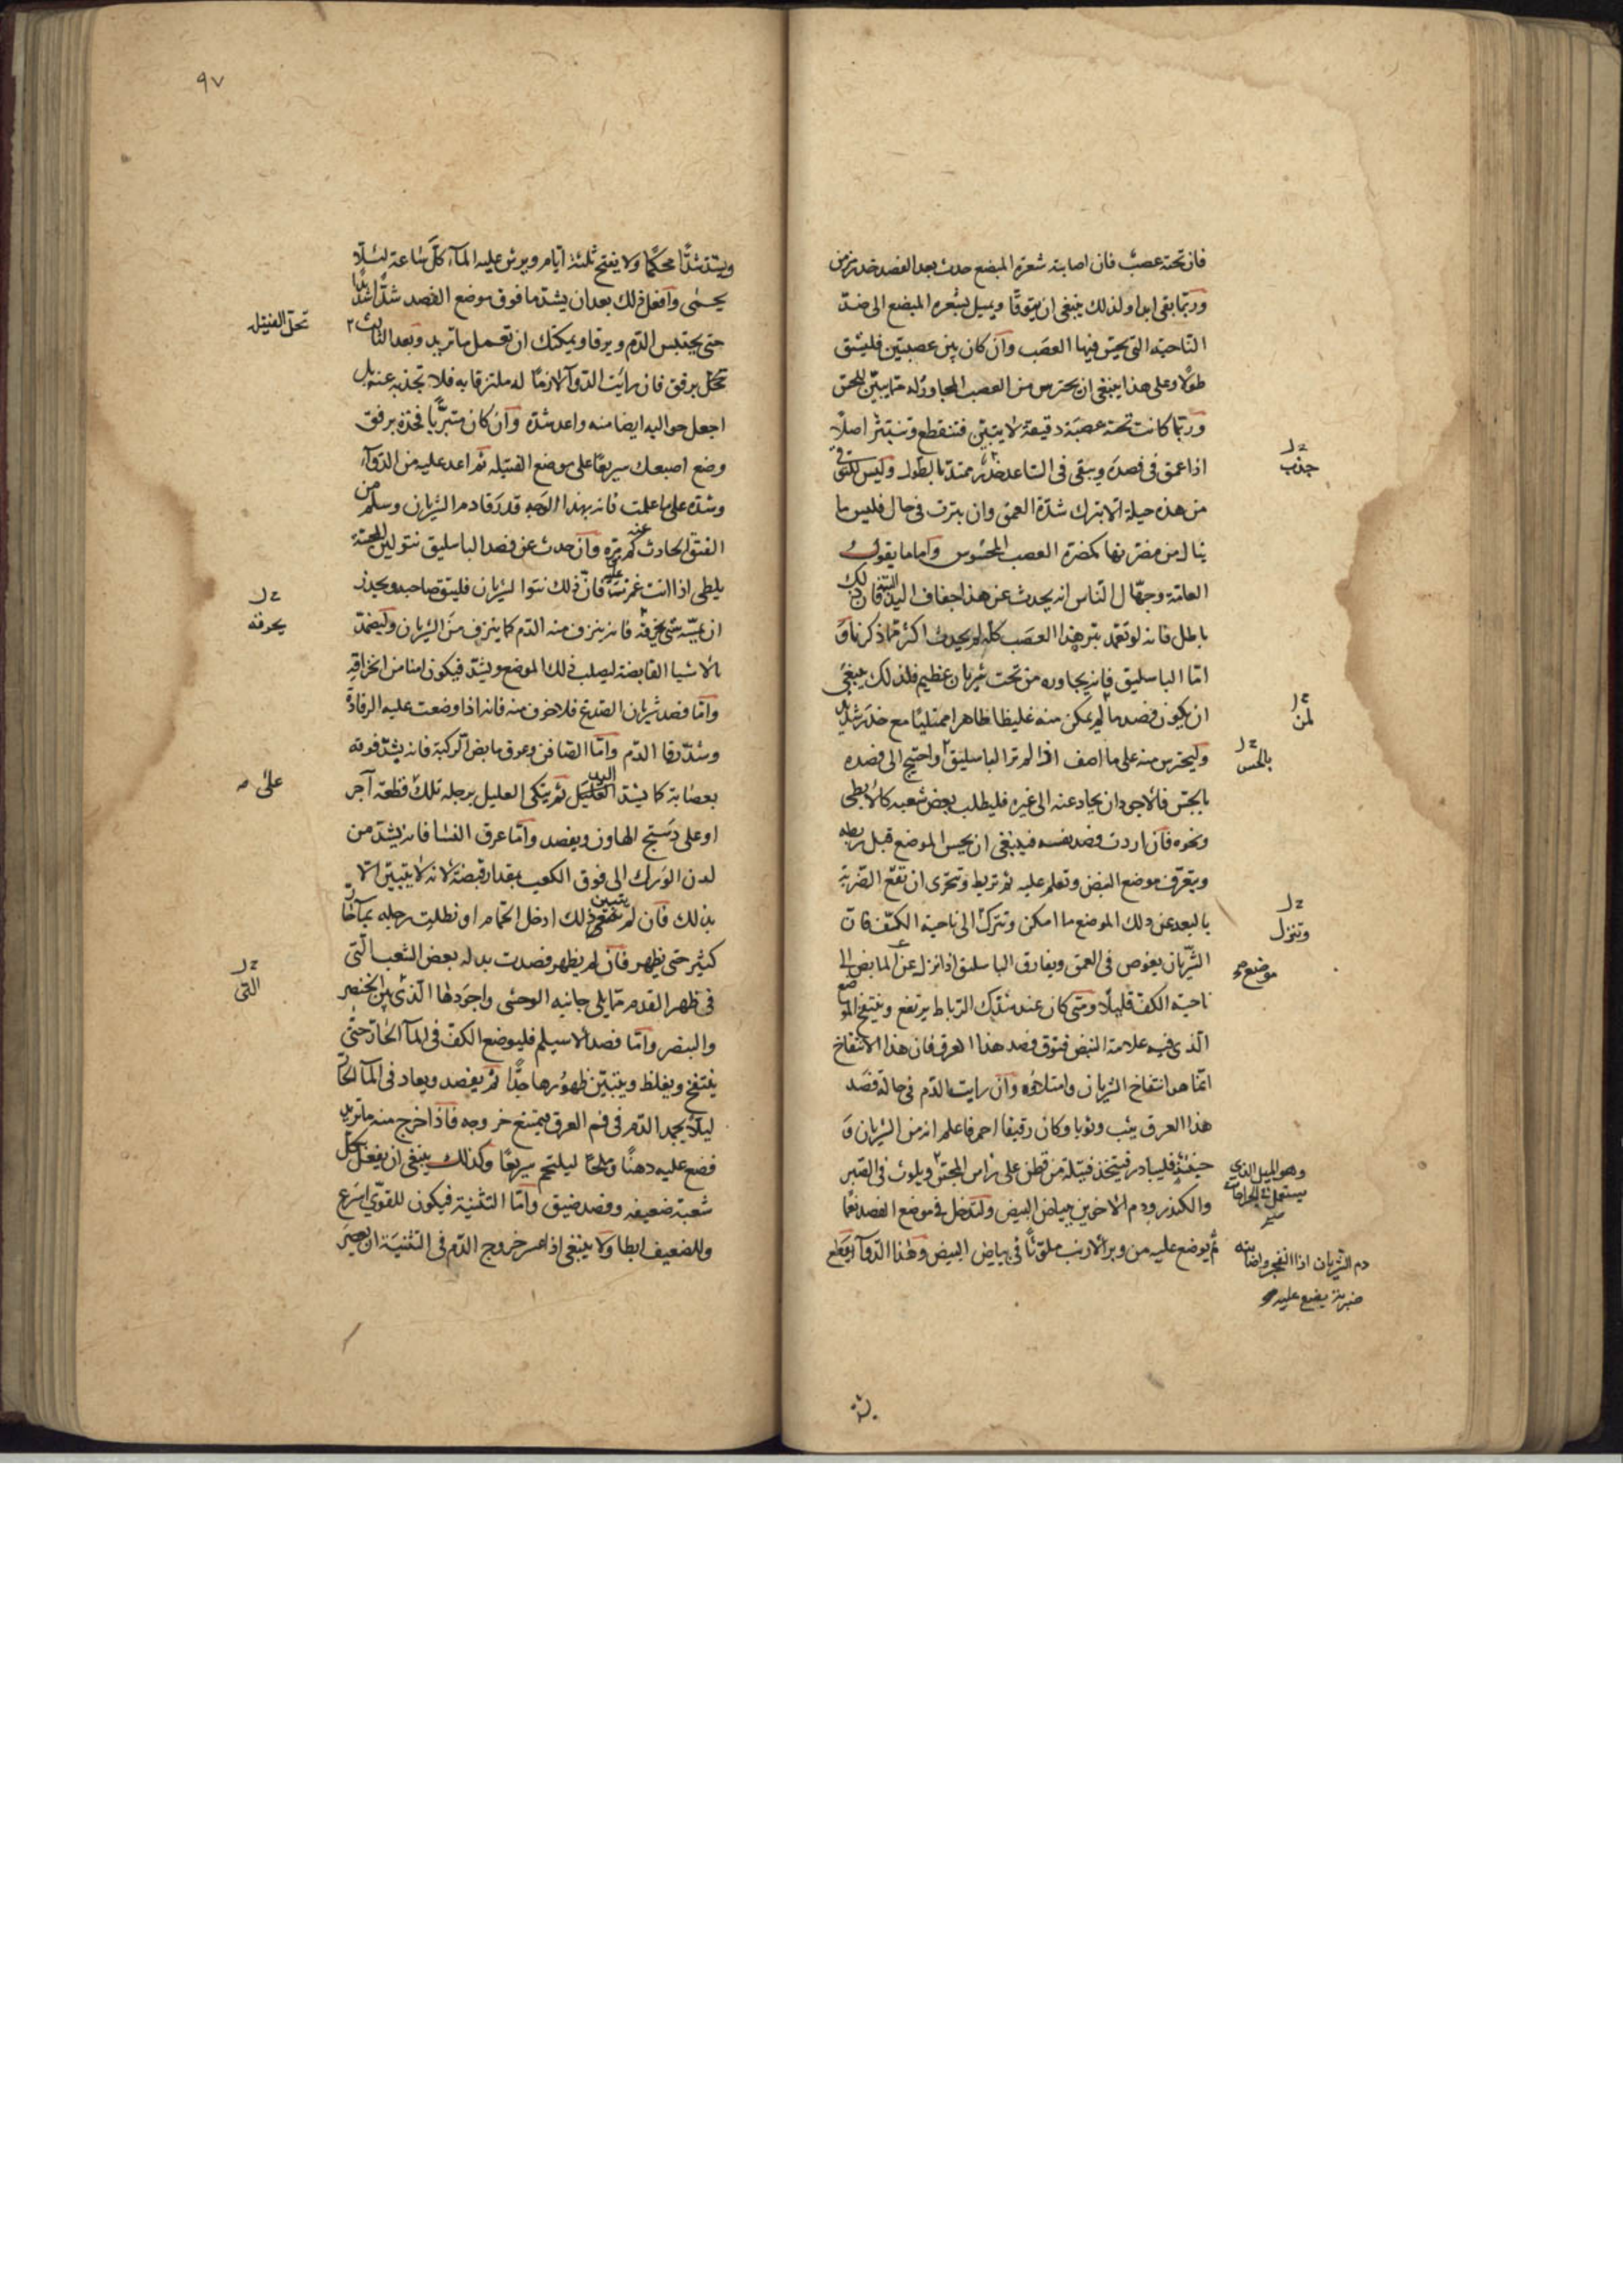 فان تحته عصب فان اصابته شعرة المبضع حدث بعد الفصد خدر مزمن
وربّما بقى ابدا ولذلك ينبغى ان يتوقا ويميل بشعره المبضع الى ضدّ
النّاحية التى يحسّ فيها العصب وان كان بين عصبتين فليشق
طولًا وعلى هذا ينبغى ان يحترس من العصب المجاور له متا يبيّن للمجسّ
وربّما كانت تحته عصبة دقيقة لا يتبيّن فتنقطع وتنبتر اصلًا
اذا عمق فى فصده ويبقى فى السّاعد خدر ممتدّ بالطول وليس للتوقّى
من هذه حيلة الا بترك شدّة العمق وان بترت فى حال فليس ما
ينال من مضرّتها كمضرّة العصب المحسوس وامّا ما يقوله
العامّة وجهّال النّاس انه يحدث عن هذا جفاف اليد البتة فان ذلك
باطل فانه لو تعمّد بتر هذا العصب كله لم يحدث اكثر ممّا ذكرنا و
امّا الباسليق فانه يجاوره من تحت شريان عظيم فلذلك ينبغى
ان يكون فصده ما لم يمكن منه غليظا ظاهرا ممتليًا مع خدر شديد
وليحترس منه على ما اصف اذا لم تر الباسليق واحتيج الى فصده
بالجسّ فالاجود ان يحاد عنه الى غيره فليطلب بعض شعبه كالابطى
ونحوه فان اردت فصد نفسه فينبغى ان يحسّ الموضع قبل ربطه
ويتعرّف موضع النبض وتعلم عليه ثم تربط وتتحرّى ان تقع الضربة
بالبعد عن ذلك الموضع ما امكن وتترك الى ناحية الكتف فان
الشّريان يغوص فى العمق ويفارق الباسليق اذا نزل عن المابض الى
ناحية الكفّ قليلًا ومتى كان عند شدّك الرّباط يرتفع وينتفخ الموضع
الّذى فيه علامة النبض فتوقّ فصد هذا العرق فان هذا الانتفاخ
انّما هو انتفاخ الشريان وامتلاؤه وان رايت الدّم فى حالة فصد
هذا العرق يثب وثوبا وكان رقيقا احمر فاعلم انه من الشريان و
حينئذ فليبادر فيتخذ فتيلة من قطن على راس المجسّ ويلوث فى الصّبر
والكندر ودم الاخوين ببياض البيض ولتدخل فى موضع الفصد نعمًا
ثم يوضع عليه من وبر الارنب ملوّثًا فى بياض البيض وهذا الدّوآ يقطع
جذب
لمن
بالحس
وتنزل
موضع صح
وهو الميل الذى
يستعمل فى الجراحات
دم الشّريان اذا انفجر واصابته
ضربة يضع عليه
٩٧
ويشدّ شدًّا محكمًا ولا يفتح ثلثة ايّام ويرش عليه المآ كلّ ساعة ليلًّا
يحمى وافعل ذلك بعد ان يشدّ ما فوق موضع الفصد شدًّا شديدًا
حتى يحتبس الدّم ويرقا ويمكنك ان تعمل ما تريد وبعد الثالث
تحل برفق فان رايت الدّوآ لازمًا له ملتزقا به فلا تجذبه عنه بل
اجعل حواليه ايضا منه واعد شدّه وان كان متبرّيًا فخذه برفق
وضع اصبعك سريعًا على موضع الفتيلة ثم اعد عليه من الدّوآ
وشدّه على ما علمت فانه بهذا الوجه قد رقا دم الشريان وسلم من
الفتق الحادث عنه كم مرّة وان حدث عن فصد الباسليق نتو لين المجسّة
يلطى اذا انت غمزت عليه فان ذلك نتوا الشريان فليتوق صاحبه ويحذر
ان يمسّه شى يخرقه فانه ينزف منه الدّم كما ينزف من الشريان وليضمّد
بالاشيا القابضة ليصلب ذلك الموضع ويشدّ فيكون امنا من انخراقه
وامّا فصد شريان الصّدغ فلا خوف منه فانه اذا وضعت عليه الرفادة
وشدّ رقا الدّم وامّا الصّافن وعرق مابض الركبة فانه يشدّ فوقه
بعصابة كما يشدّ اليد ثم يتكى العليل برجله تلك قطعة آجر
او على دستج الهاون ويفصد وامّا عرق النسا فانه يشدّ من
لدن الورك الى فوق الكعب بمقدار قبضة لانه لا يتبيّن الا
بذلك فان لم يتبين مع ذلك ادخل الحمّام او نطلت رجله بمآ حارّ
كثير حتى يظهر فان لم يظهر فصدت بدله بعض الشعب الّتى
فى ظهر القدم ممّا يلى جانبه الوحشى واجودها الّذى بين الخنصر
والبنصر وامّا فصد الاسيلم فليوضع الكفّ فى المآ الحارّ حتّى
ينتفخ ويغلظ ويتبيّن ظهورها جدًّا ثم يفصد ويعاد فى المآ الحارّ
ليلّا يجمد الدّم فى فم العرق فيمتنع خروجه فاذا اخرج منه ما تريد
فضع عليه دهنًا وملحًا ليلتحم سريعًا وكذلك ينبغى ان يفعل بكلّ
شعبة ضعيفه وفصد ضيق وامّا التثنية فيكون للقوىّ اسرع
وللضعيف ابطا ولا ينبغى اذا عسر خروج الدّم فى التثنية ان يعصر
تحلّ الفتيله
يخرقه
على صح
التى